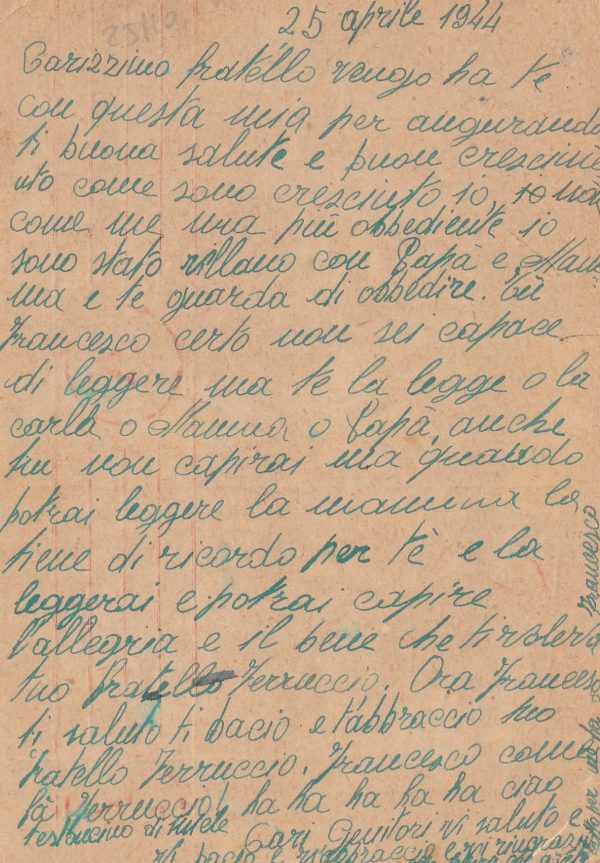 25 aprile 1944
Carizzimo fratello vengo ha te
con questa mia per augurando
ti buona salute e buon crescime
nto come sono cresciuto io, io non
come me ma più obbediente io
sono stato villano con Papà e Mam
ma e te guarda di obbedire. tu
Francesco certo non sei capace
di leggere ma te la legge o la
carla o Mamma o Papà, anche
tu non capirai ma quando
potrai leggere la mamma la
tiene di ricordo per tè e la
leggerai e potrai capire
l'allegria e il bene che ti voleva
tuo fratello Ferruccio. Ora Francesco
ti saluto ti bacio e t'abbraccio tuo
fratello Ferruccio. Francesco come
fà Ferruccio! ha ha ha ha ha ciao
testoncino di
Cari Genitori vi saluto e
vi bacio e vi abbraccio e vi ringrazio
Francesco